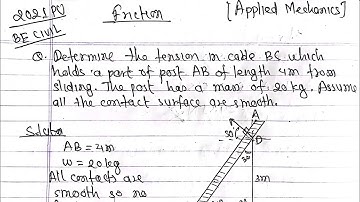 2021 PU
BE CIVIL
Friction
[Applied Mechanics]
Q. Determine the tension in cable BC which
holds a part of post AB of length 4m from
sliding. The post has a mass of 20 kg. Assume
all the contact surface are smooth.
Solution
AB = 4m
W = 20 kg
All contacts are
smooth so no
A
D
30°
3m